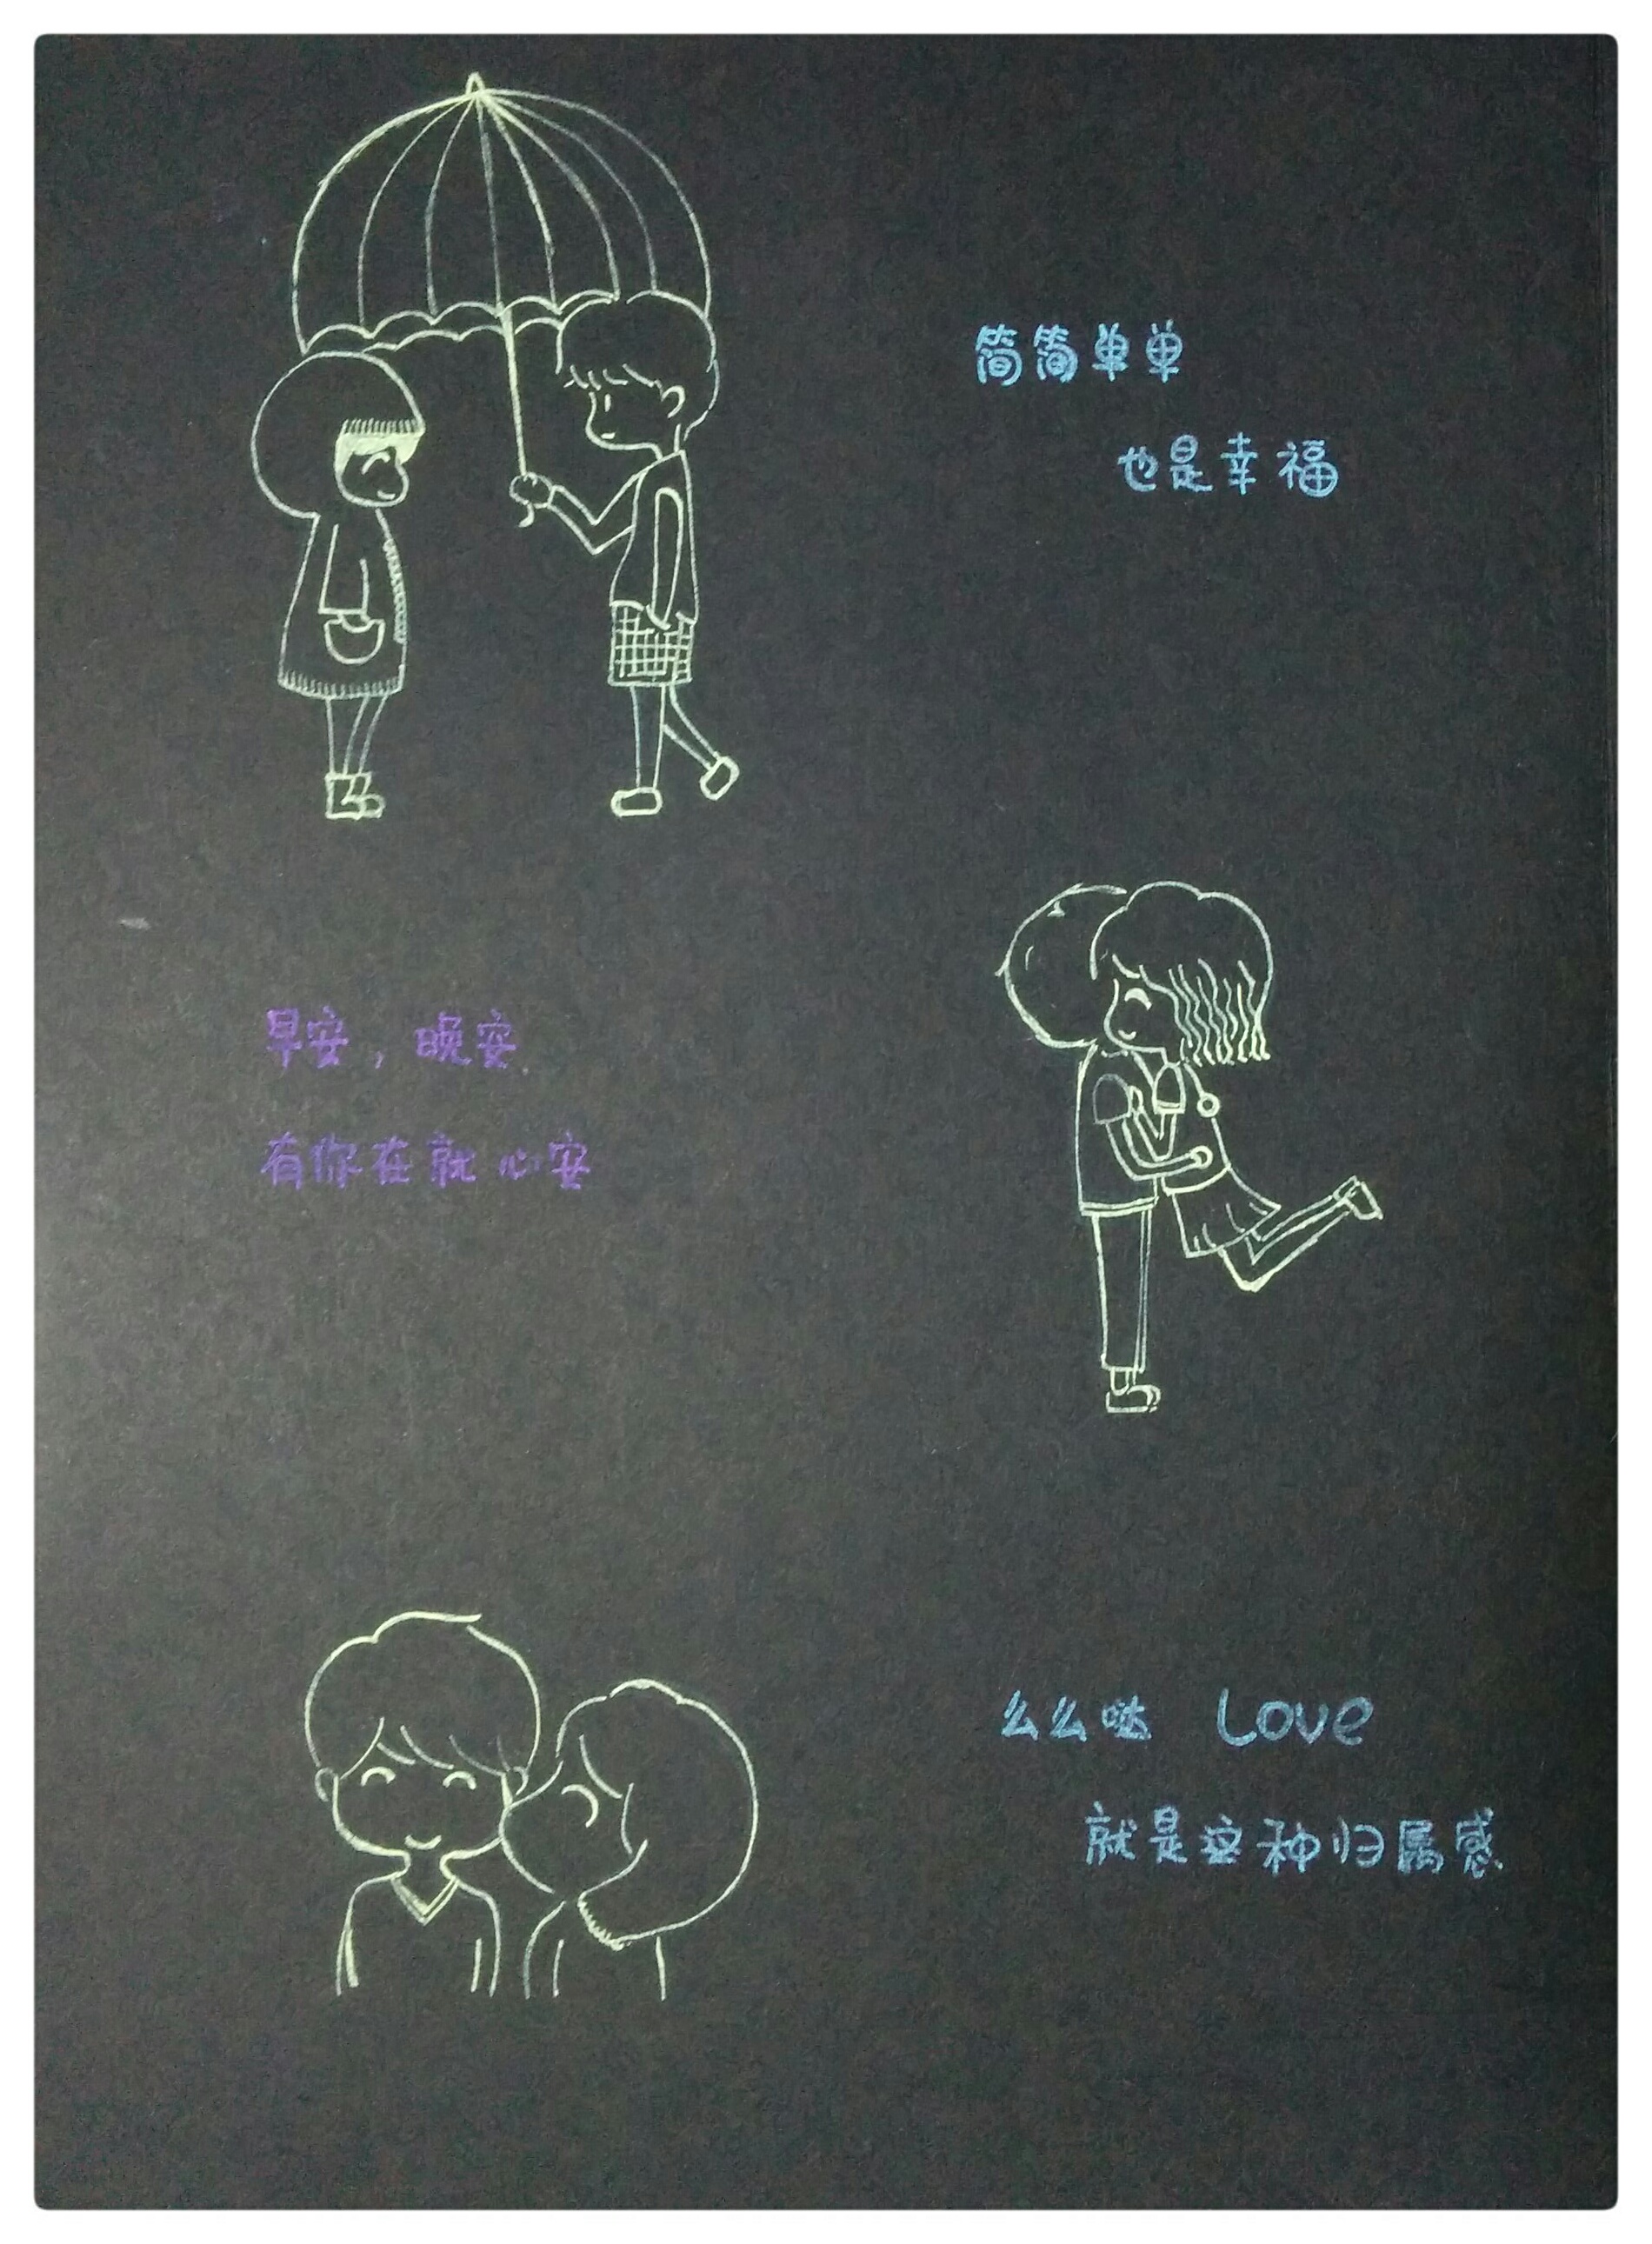 简简单单
也是幸福
早安，晚安
有你在就心安
么么哒 Love
就是这种归属感